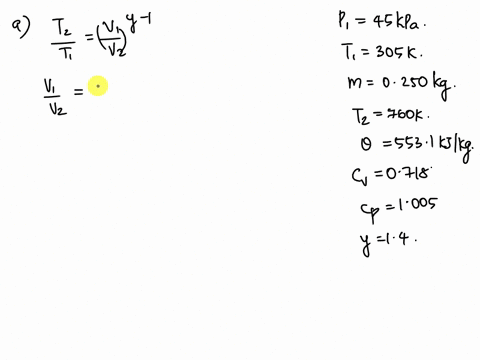 a) T₂/T₁ = (V₁/V₂)^y-1
V₁/V₂ =
P₁ = 45 kPa.
T₁ = 305 K.
m = 0.250 kg.
T₂ = 760K.
θ = 553.1 kJ/kg.
Cᵥ = 0.718
Cp = 1.005
y = 1.4.